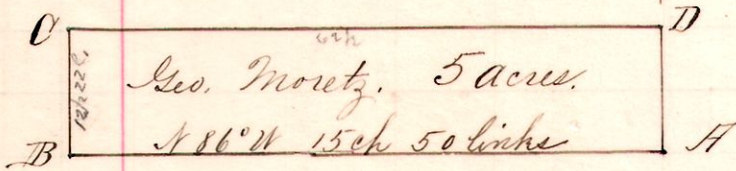 C D
Geo. Moretz. 5 acres.
N 86° W 15 ch 50 links
B A